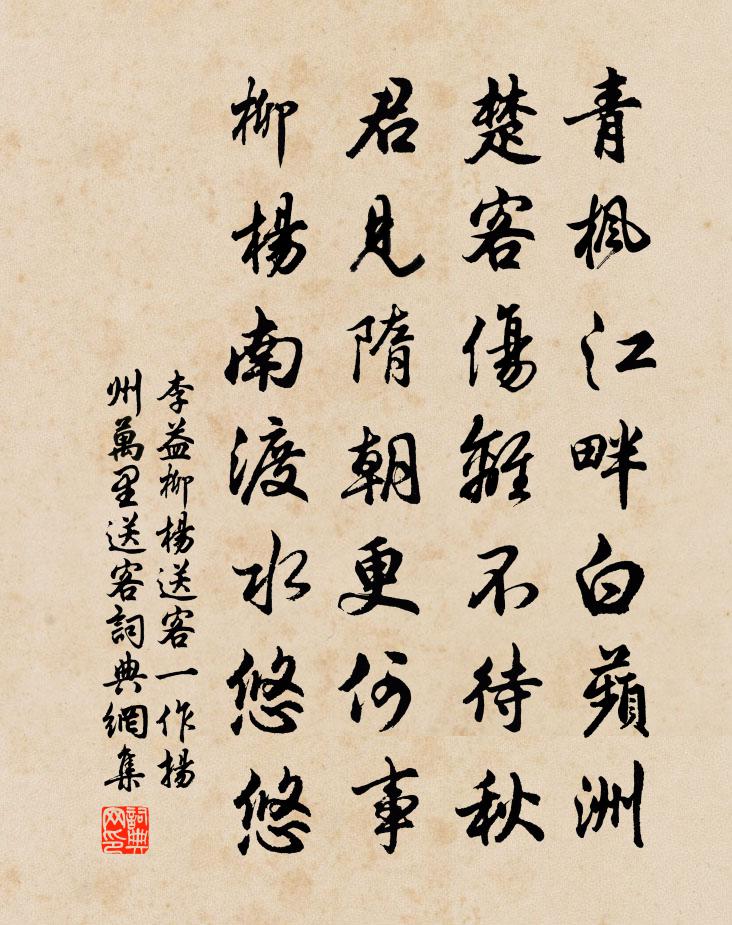 青楓江畔白蘋洲
楚客傷離不待秋
君見隋朝更何事
柳楊南渡水悠悠
李益柳楊送客一作揚
州萬里送客詞典網集
詞典
网印